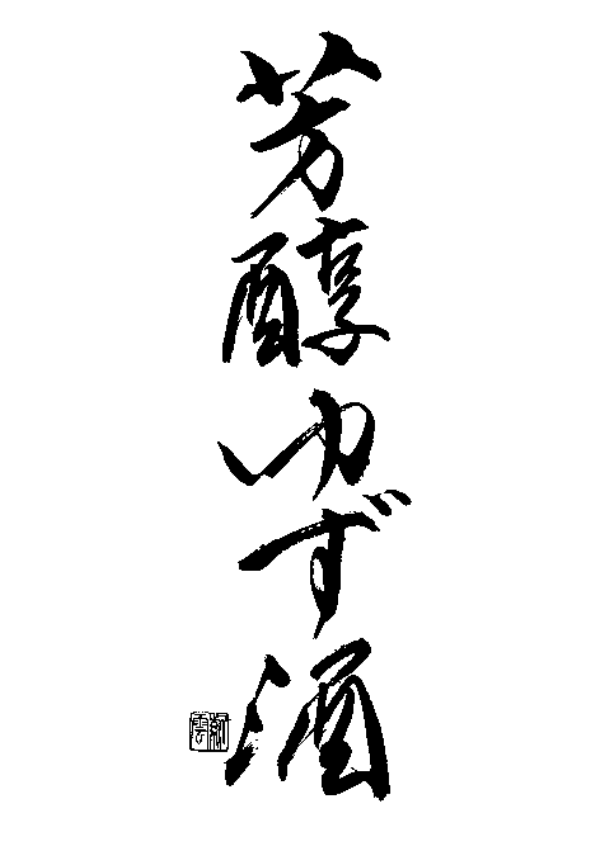 芳醇ゆず酒